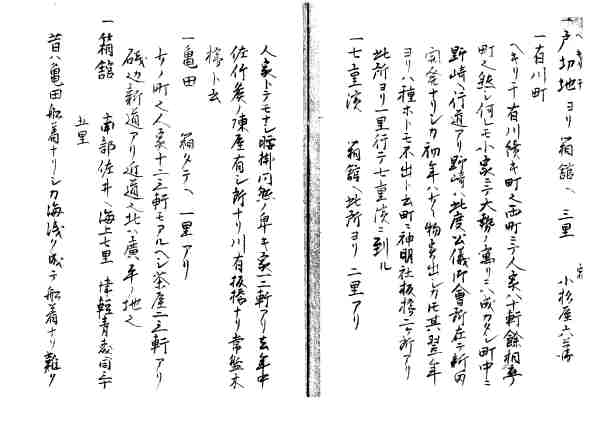 一戸切地ヨリ箱舘ヘ 三里 宿 小松屋六三郎
ヘキリチ
一有川町
ヘキリチ有川続キ町之西町ニテ人家八十軒餘相寧
町之然シ何レモ小家ニテ大勢ノ寓リニハ成カタシ町中ニ
野崎ヘ行道アリ野崎ハ此度公儀御會所在テ新田
開発ナリシカ初年ハ少ク物実出シカ共其翌年
ヨリハ種ホトモ不出ト云町ニ神明社板橋二ケ所アリ
此所ヨリ一里行テ七重濱ニ到ル
一七重濱 箱舘ヘ此所ヨリ二里アリ
人家トテモナシ腰掛同然ノ卑キ家一二軒アリ去年中
佐竹矦ノ陳屋有シ所ナリ川有板橋ナリ常盤木
橋ト云
一亀田 箱タテヘ 一里アリ
少ノ町之人家十二三軒モアルヘシ茶屋二三軒アリ
磯辺新道アリ近道之此ハ廣平ノ地之
一箱舘 南部佐井ヘ海上七里 津軽青森同三十
五里
昔ハ亀田船着ナリシカ海浅ク成テ船着ナリ難ク